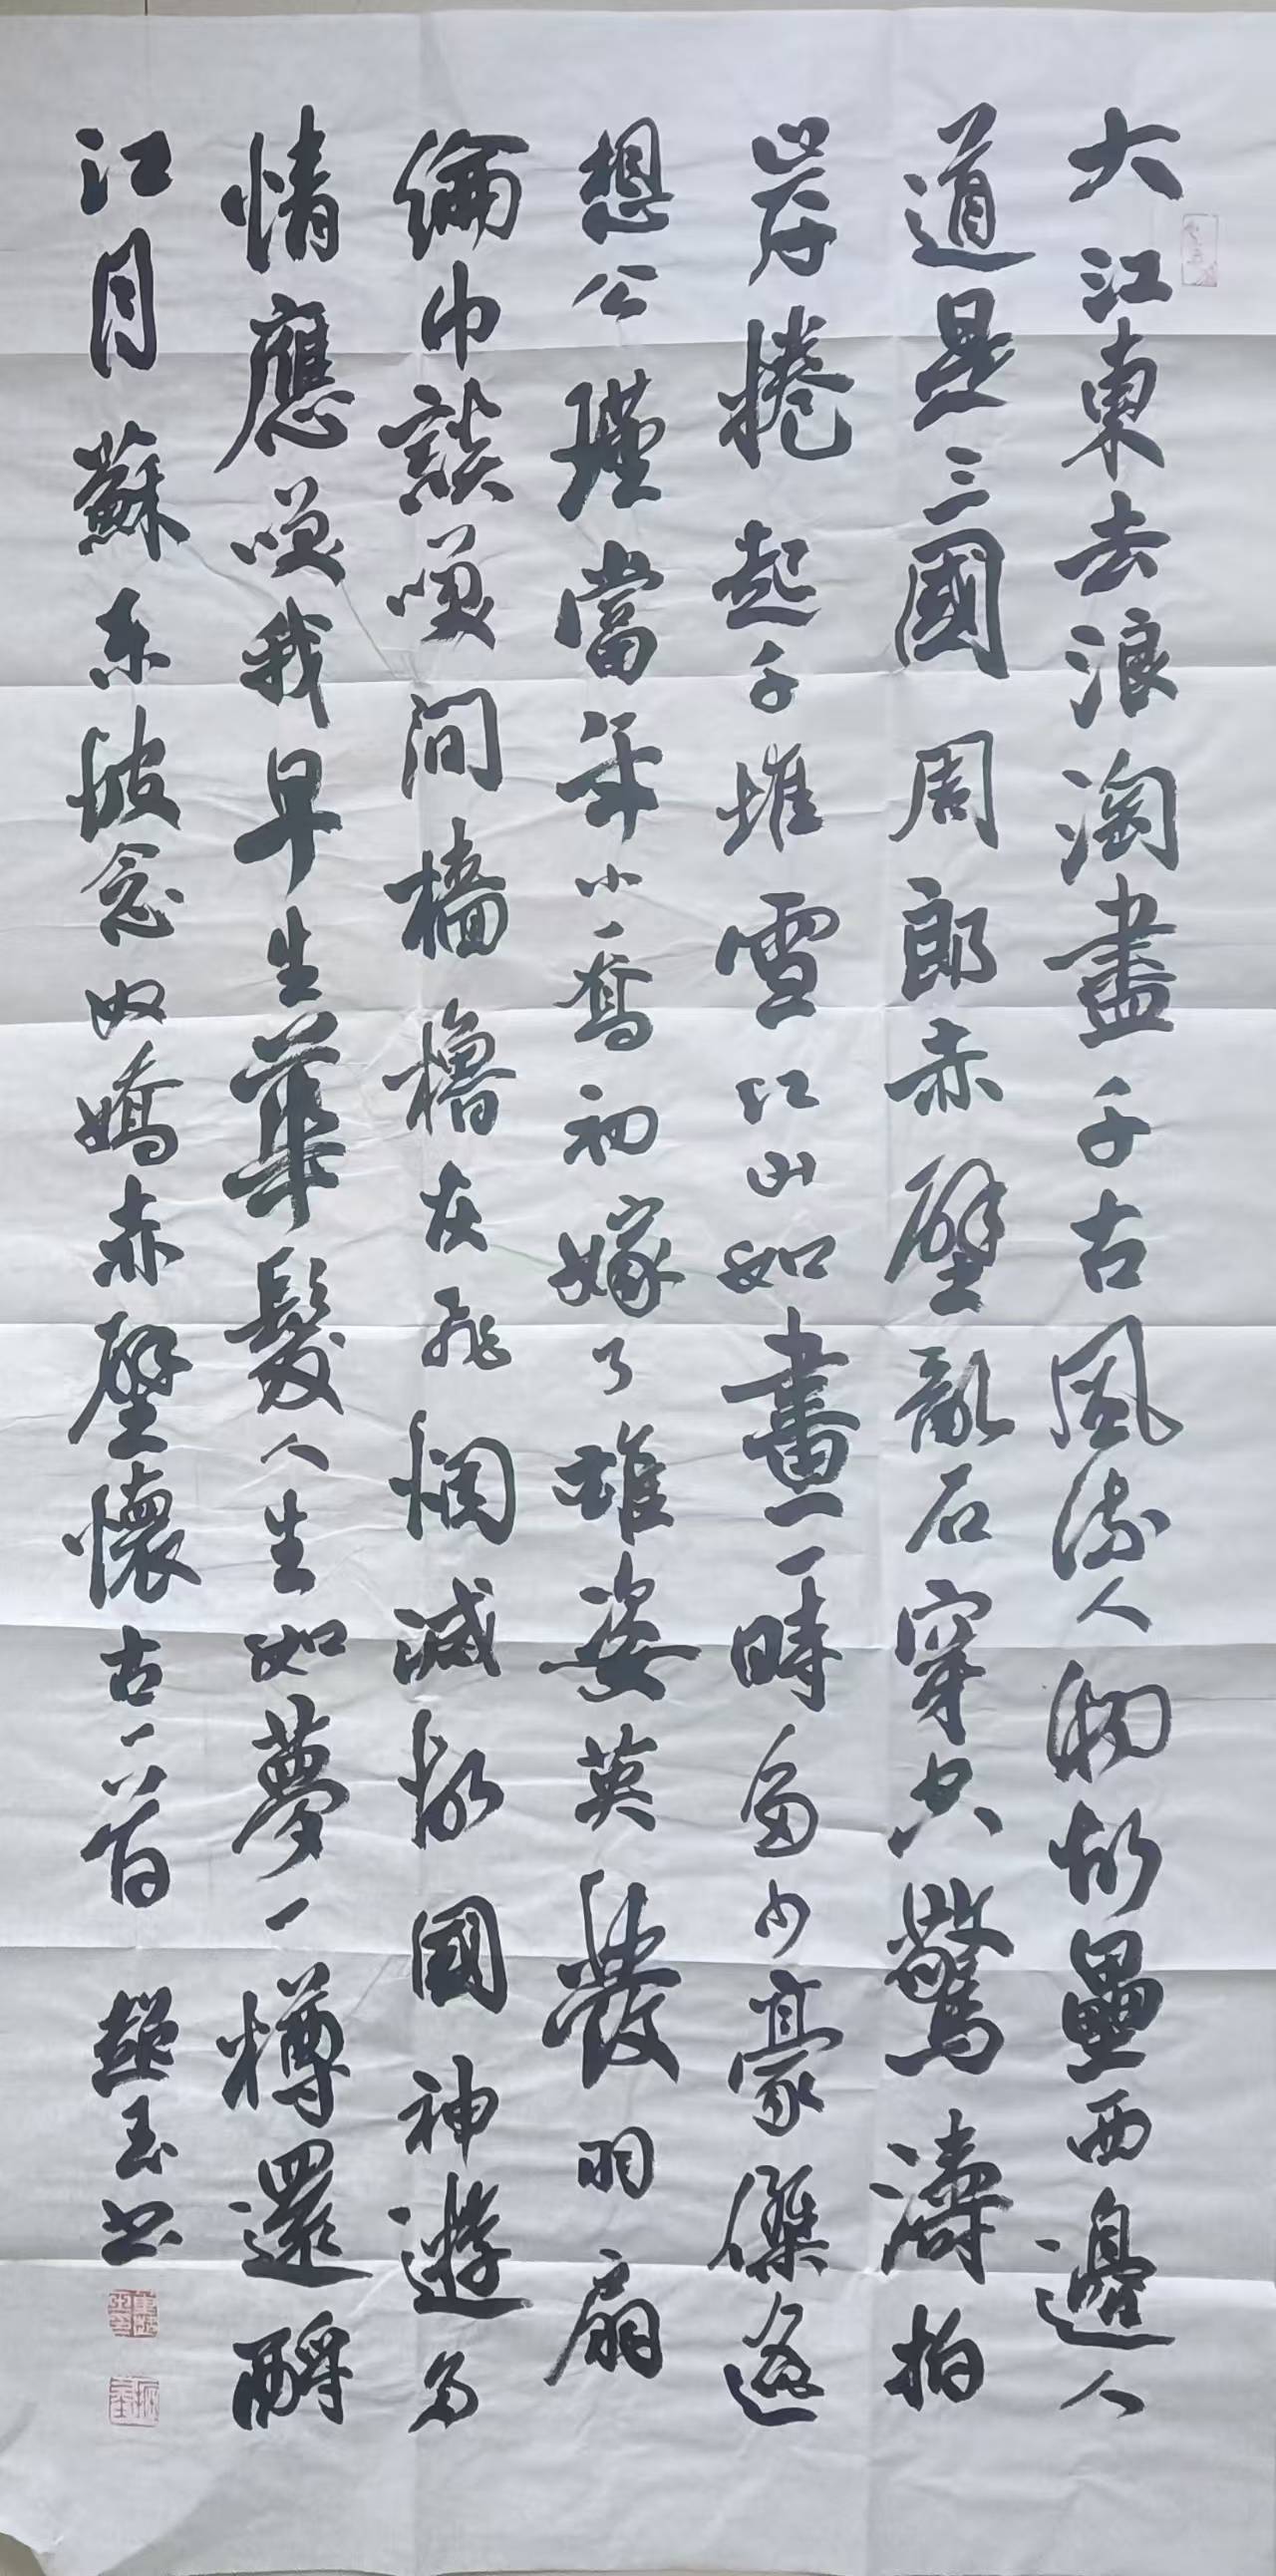 大江東去浪淘盡千古風流人物故壘西邊人
道是三國周郎赤壁亂石穿空驚濤拍
岸捲起千堆雪江山如畫一時多少豪傑遙
想公瑾當年小喬初嫁了雄姿英發羽扇
綸巾談笑間檣櫓灰飛烟滅故國神遊多
情應笑我早生華髮人生如夢一樽還酹
江月蘇东坡念奴嬌赤壁懷古一首 趙玉书